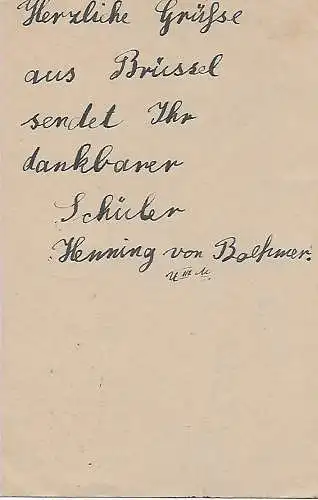 Herzliche Grüße
aus Brüssel
sendet Ihr
dankbarer
Schüler
Henning von Boehmer.
U III M.